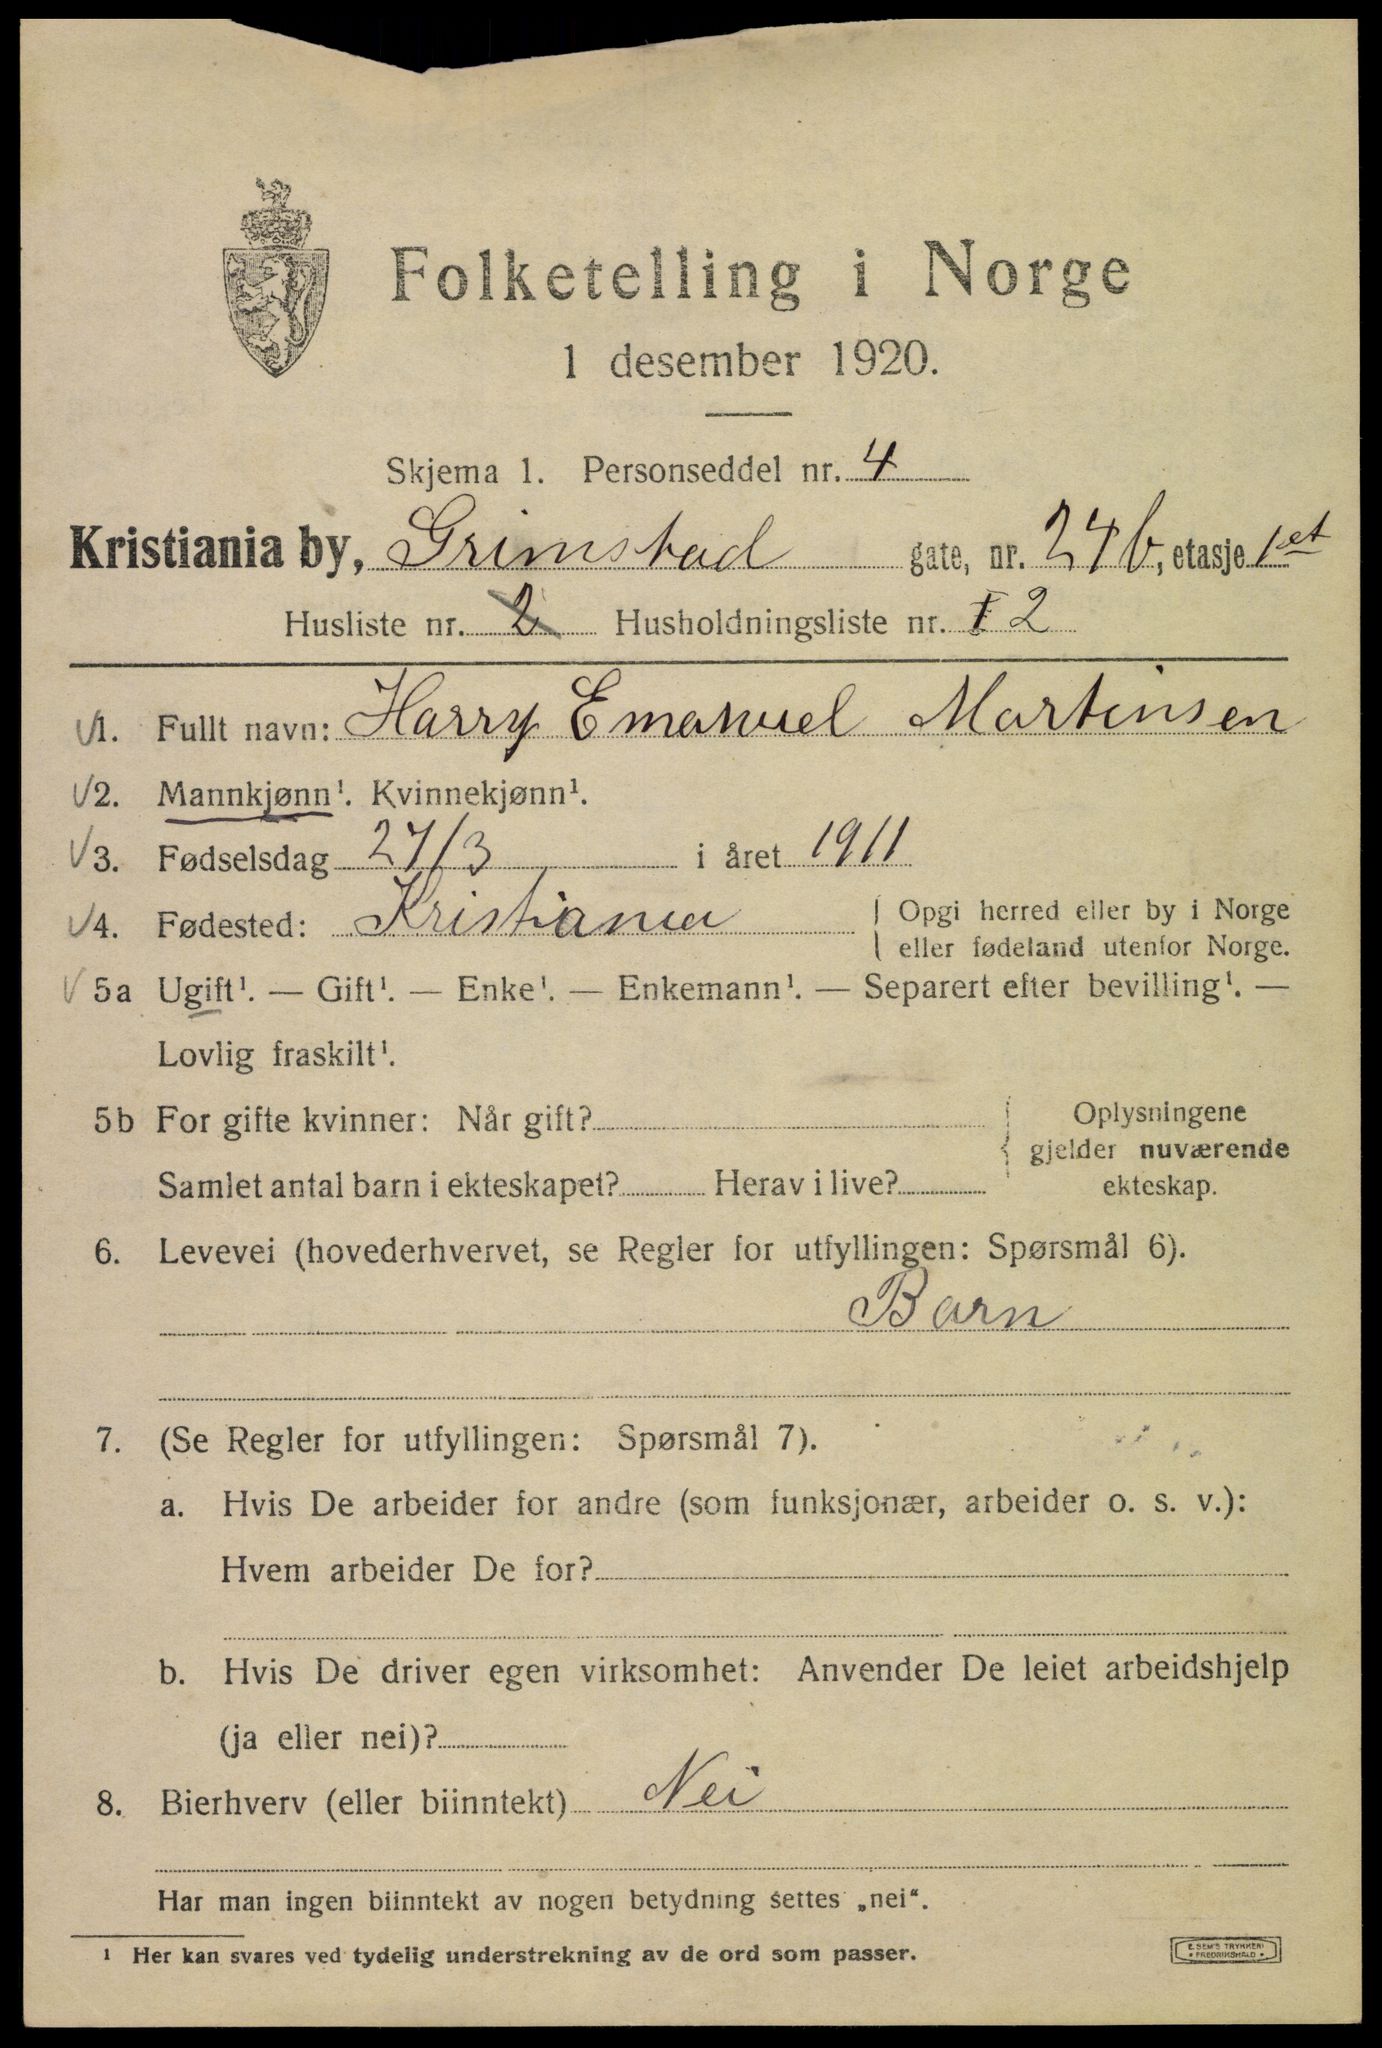 Folketelling i Norge
1 desember 1920.
Skjema 1. Personseddel nr. 4
Kristiania by, Grimstad gate, nr. 24b, etasje 1 et
Husliste nr. 2 Husholdningsliste nr. 2
1. Fullt navn: Harry Emanuel Martinsen
2. Mannkjønn¹. Kvinnekjønn¹.
3. Fødselsdag 27/3 i året 1911
4. Fødested: Kristiania { Opgi herred eller by i Norge
eller fødeland utenfor Norge.
5a Ugift¹. — Gift¹. — Enke¹. — Enkemann¹. — Separert efter bevilling¹. —
Lovlig fraskilt¹.
5b For gifte kvinner: Når gift? { Oplysningene
gjelder nuværende
Samlet antal barn i ekteskapet? Herav i live? ekteskap.
6. Levevei (hovederhvervet, se Regler for utfyllingen: Spørsmål 6).
Barn
7. (Se Regler for utfyllingen: Spørsmål 7).
a. Hvis De arbeider for andre (som funksjonær, arbeider o. s. v.):
Hvem arbeider De for?
b. Hvis De driver egen virksomhet: Anvender De leiet arbeidshjelp
(ja eller nei)?
8. Bierhverv (eller biinntekt) Nei
Har man ingen biinntekt av nogen betydning settes „nei“.
¹ Her kan svares ved tydelig understrekning av de ord som passer.
E. SEM'S TRYKKERI
• FREDRIKSHALD •